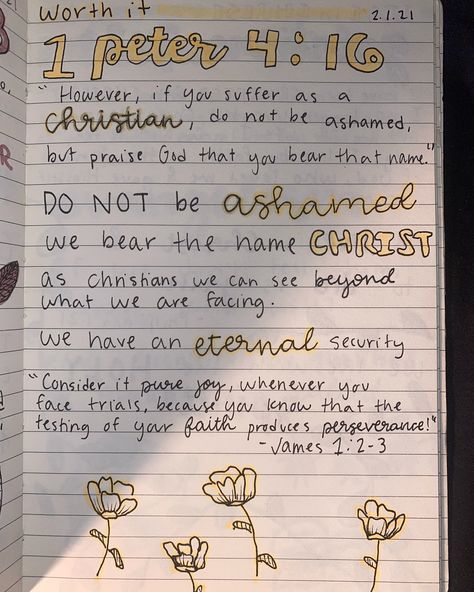 worth it
2.1.21
1 peter 4:16
"However, if you suffer as a
Christian, do not be ashamed,
but praise God that you bear that name."
DO NOT be ashamed
we bear the name CHRIST
as Christians we can see beyond
what we are facing.
we have an eternal security
"Consider it pure joy, whenever you
face trials, because you know that the
testing of your faith produces perseverance!"
-James 1:2-3